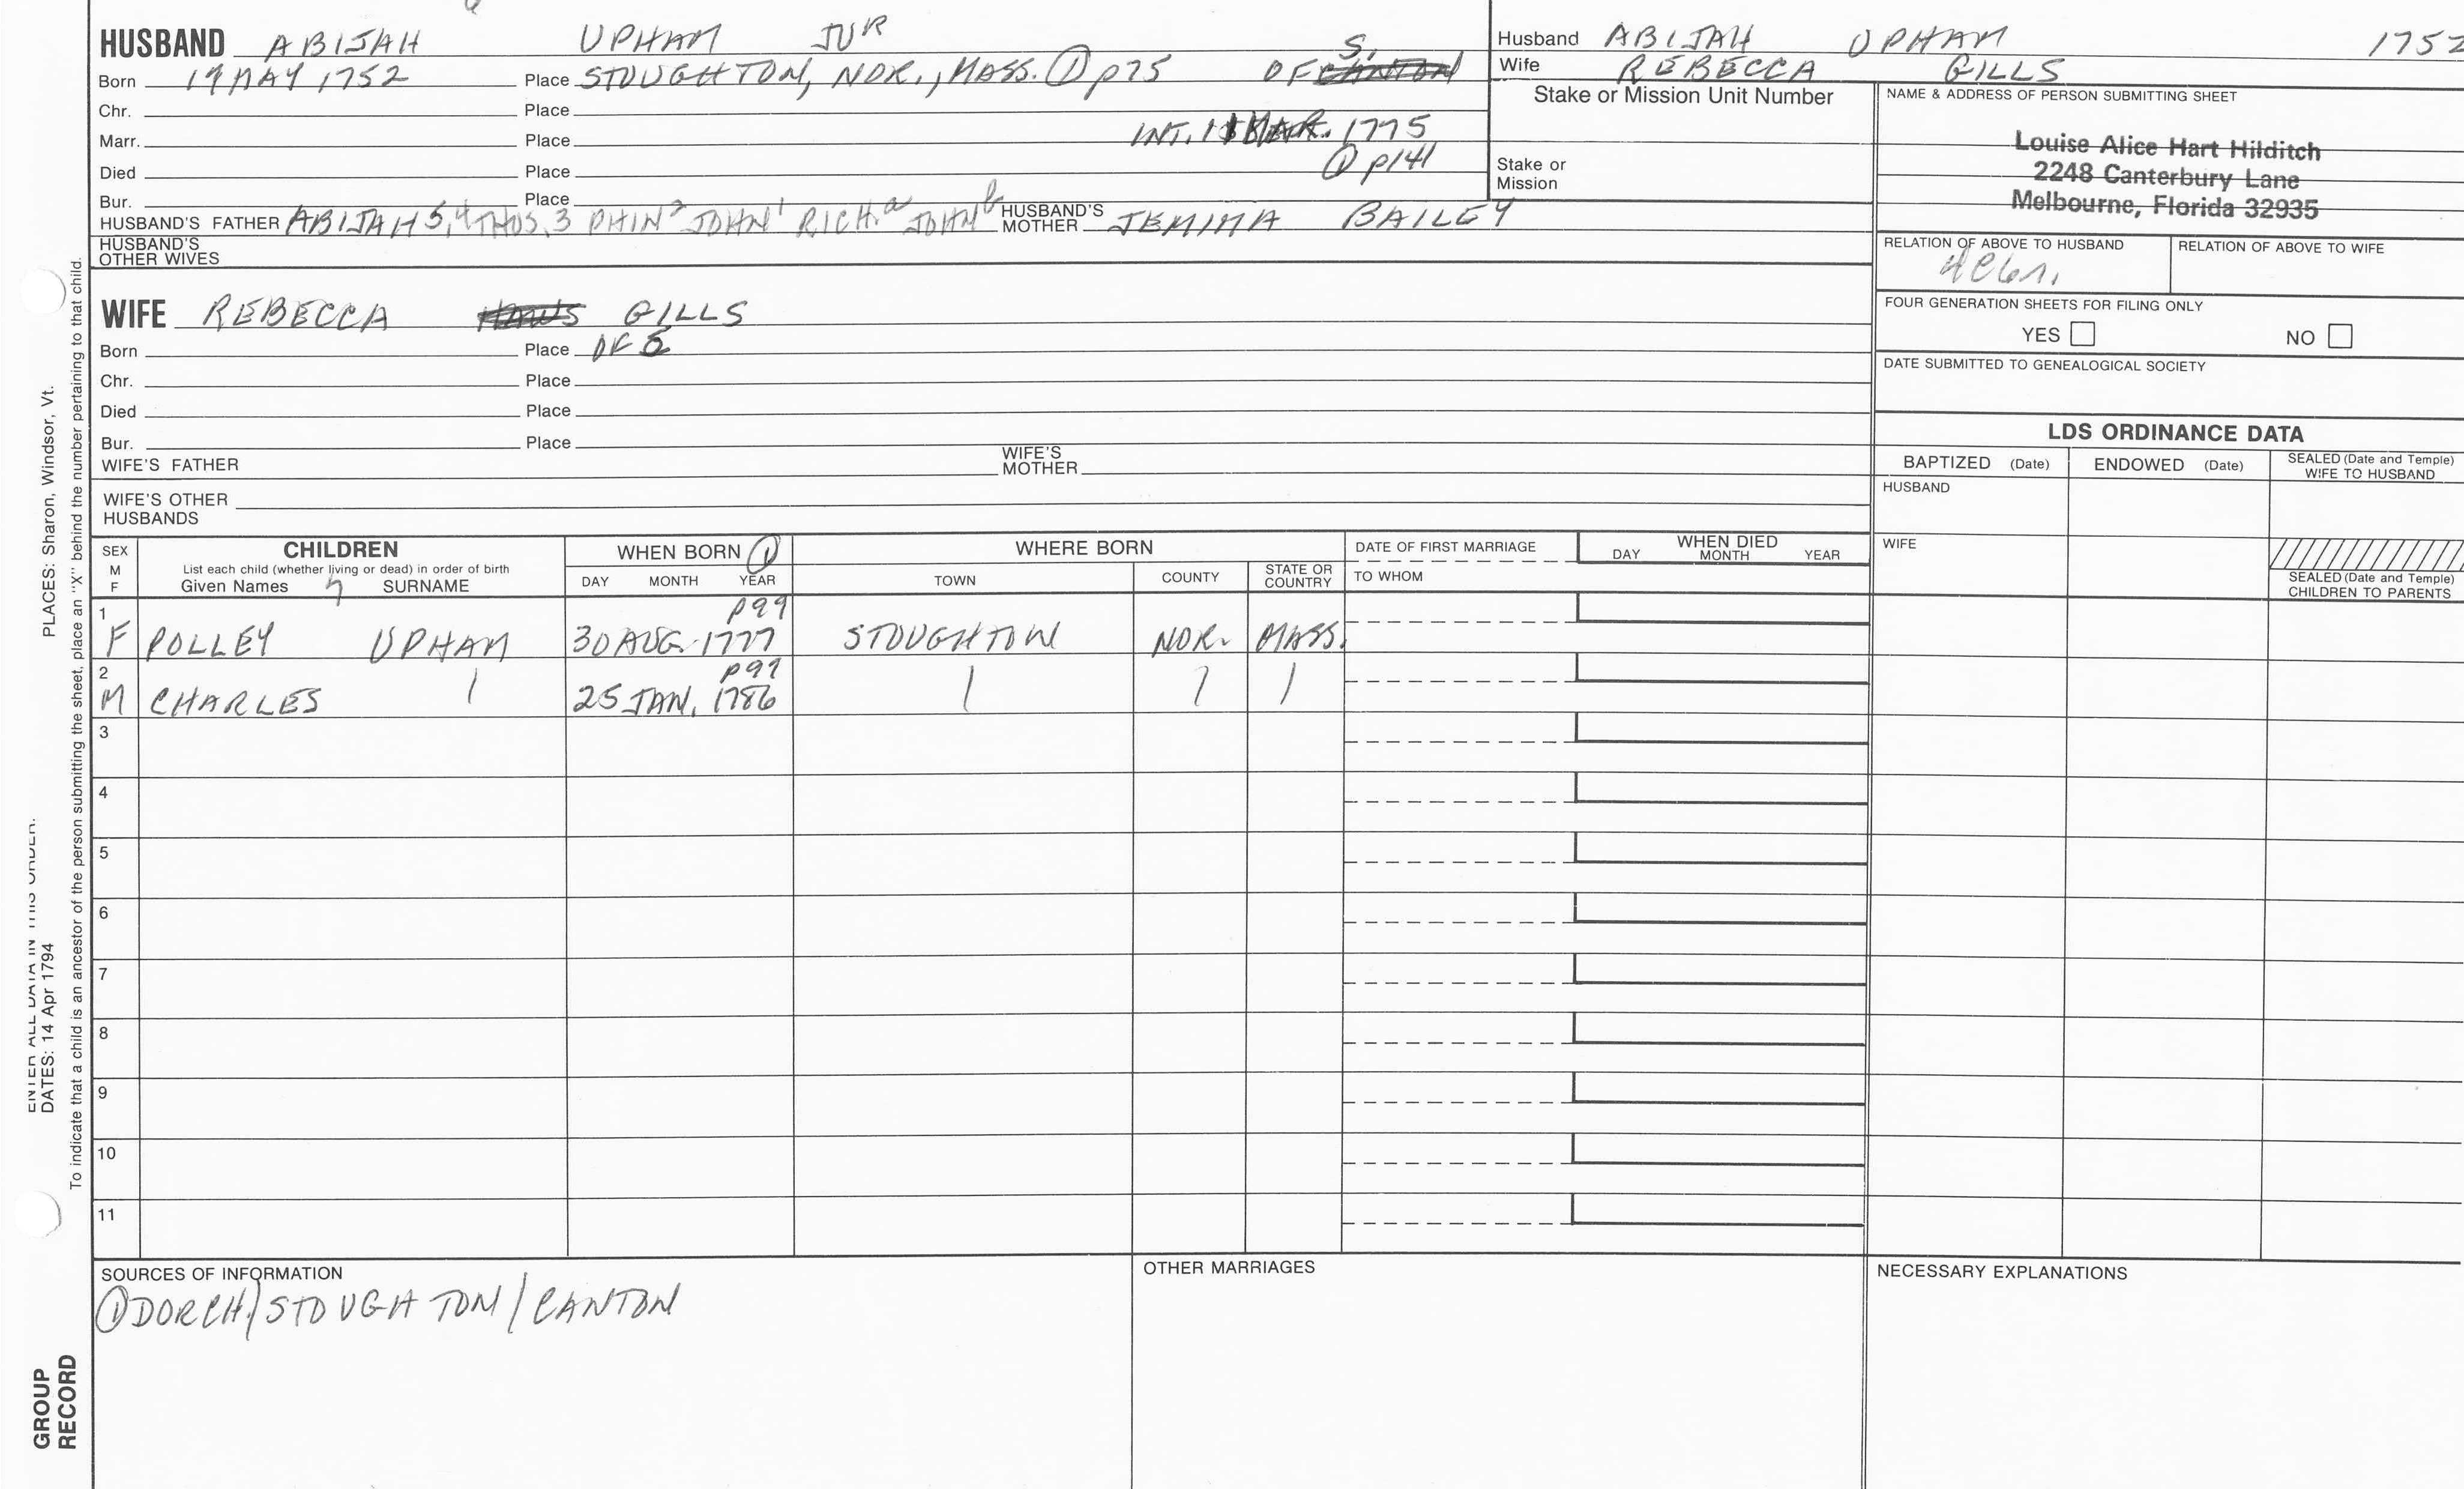 HUSBAND ABIJAH UPHAM JUR
Born 19 MAY 1752 Place STOUGHTON, NOR., MASS. ① p75 OF S.
Chr. Place
Marr. Place INT. MAR. 1775
Died Place ① p141
Bur. Place
HUSBAND'S FATHER ABIJAH 5, 4 THOS. 3 PHIN 2 JOHN 1 RICH. a JOHN b HUSBAND'S MOTHER JEMIMA BAILEY
HUSBAND'S OTHER WIVES
Husband ABIJAH UPHAM 1752
Wife REBECCA GILLS
Stake or Mission Unit Number
Stake or Mission
NAME & ADDRESS OF PERSON SUBMITTING SHEET
Louise Alice Hart Hilditch
2248 Canterbury Lane
Melbourne, Florida 32935
RELATION OF ABOVE TO HUSBAND RELATION OF ABOVE TO WIFE
WIFE REBECCA GILLS
Born Place OF S
Chr. Place
Died Place
Bur. Place
WIFE'S FATHER WIFE'S MOTHER
WIFE'S OTHER HUSBANDS
FOUR GENERATION SHEETS FOR FILING ONLY
YES NO
DATE SUBMITTED TO GENEALOGICAL SOCIETY
LDS ORDINANCE DATA
BAPTIZED (Date) ENDOWED (Date) SEALED (Date and Temple) WIFE TO HUSBAND
HUSBAND
WIFE
SEALED (Date and Temple) CHILDREN TO PARENTS
SEX M F
CHILDREN
List each child (whether living or dead) in order of birth
Given Names SURNAME
WHEN BORN ①
DAY MONTH YEAR
WHERE BORN
TOWN COUNTY STATE OR COUNTRY
DATE OF FIRST MARRIAGE
TO WHOM
WHEN DIED
DAY MONTH YEAR
1 p99
F POLLEY UPHAM 30 AUG. 1777 STOUGHTON NOR. MASS.
2 p99
M CHARLES 25 JAN. 1786
3
4
5
6
7
8
9
10
11
SOURCES OF INFORMATION
① DORCH/STOUGHTON/CANTON
OTHER MARRIAGES
NECESSARY EXPLANATIONS
PLACES: Sharon, Windsor, Vt.
DATES: 14 Apr 1794
To indicate that a child is an ancestor of the person submitting the sheet, place an "X" behind the number pertaining to that child.
GROUP
RECORD